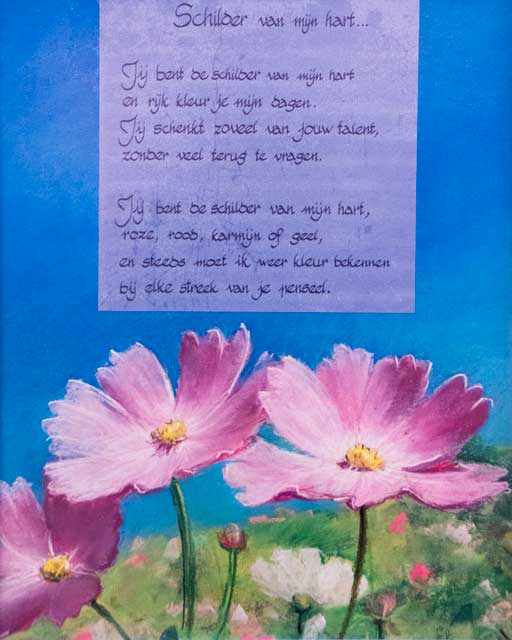 Schilder van mijn hart...
Jij bent de schilder van mijn hart
en rijk kleur je mijn dagen.
Jij schenkt zoveel van jouw talent,
zonder veel terug te vragen.
Jij bent de schilder van mijn hart,
roze, rood, karmijn of geel,
en steeds moet ik weer kleur bekennen
bij elke streek van je penseel.